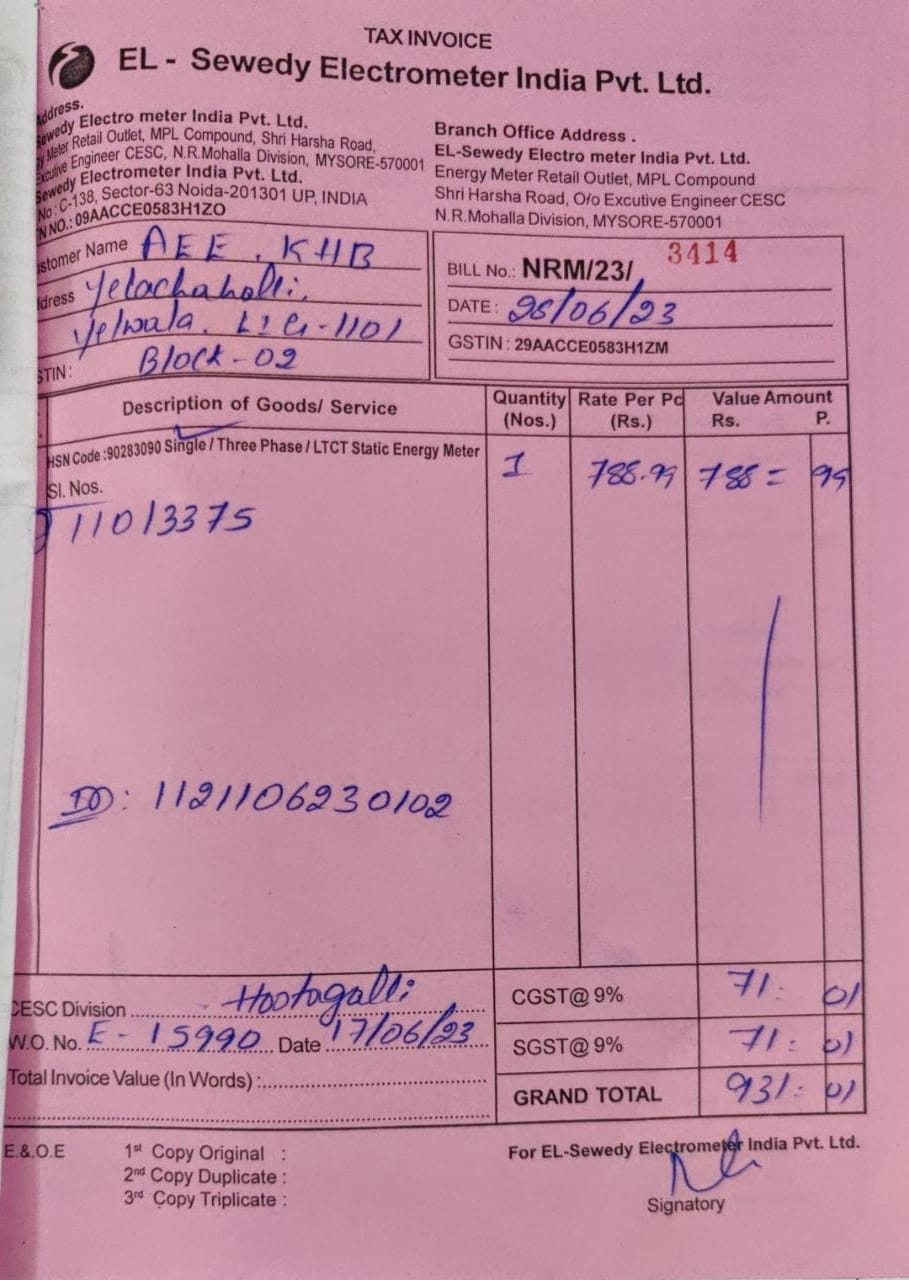 TAX INVOICE
EL - Sewedy Electrometer India Pvt. Ltd.
Address.
Sewedy Electro meter India Pvt. Ltd.
Meter Retail Outlet, MPL Compound, Shri Harsha Road,
Excutive Engineer CESC, N.R.Mohalla Division, MYSORE-570001
Sewedy Electrometer India Pvt. Ltd.
No : C-138, Sector-63 Noida-201301 UP, INDIA
N NO.: 09AACCE0583H1ZO
Branch Office Address .
EL-Sewedy Electro meter India Pvt. Ltd.
Energy Meter Retail Outlet, MPL Compound
Shri Harsha Road, O/o Excutive Engineer CESC
N.R.Mohalla Division, MYSORE-570001
ustomer Name AEE . KHB
ddress Yelachahalli,
Yelwala. LIG-1101
STIN : Block - 02
BILL No.: NRM/23/ 3414
DATE : 26/06/23
GSTIN : 29AACCE0583H1ZM
Description of Goods/ Service Quantity (Nos.) Rate Per Pc (Rs.) Value Amount Rs. P.
HSN Code :90283090 Single / Three Phase / LTCT Static Energy Meter 1 788.99 788 = 99
Sl. Nos.
11013375
DD: 1121106230102
CESC Division Hootagalli
W.O. No. E - 15990 Date 17/06/23
Total Invoice Value (In Words) :
CGST@ 9% 71: 01
SGST@ 9% 71: 01
GRAND TOTAL 931: 01
E.&.O.E
1st Copy Original :
2nd Copy Duplicate :
3rd Copy Triplicate :
For EL-Sewedy Electrometer India Pvt. Ltd.
Signatory